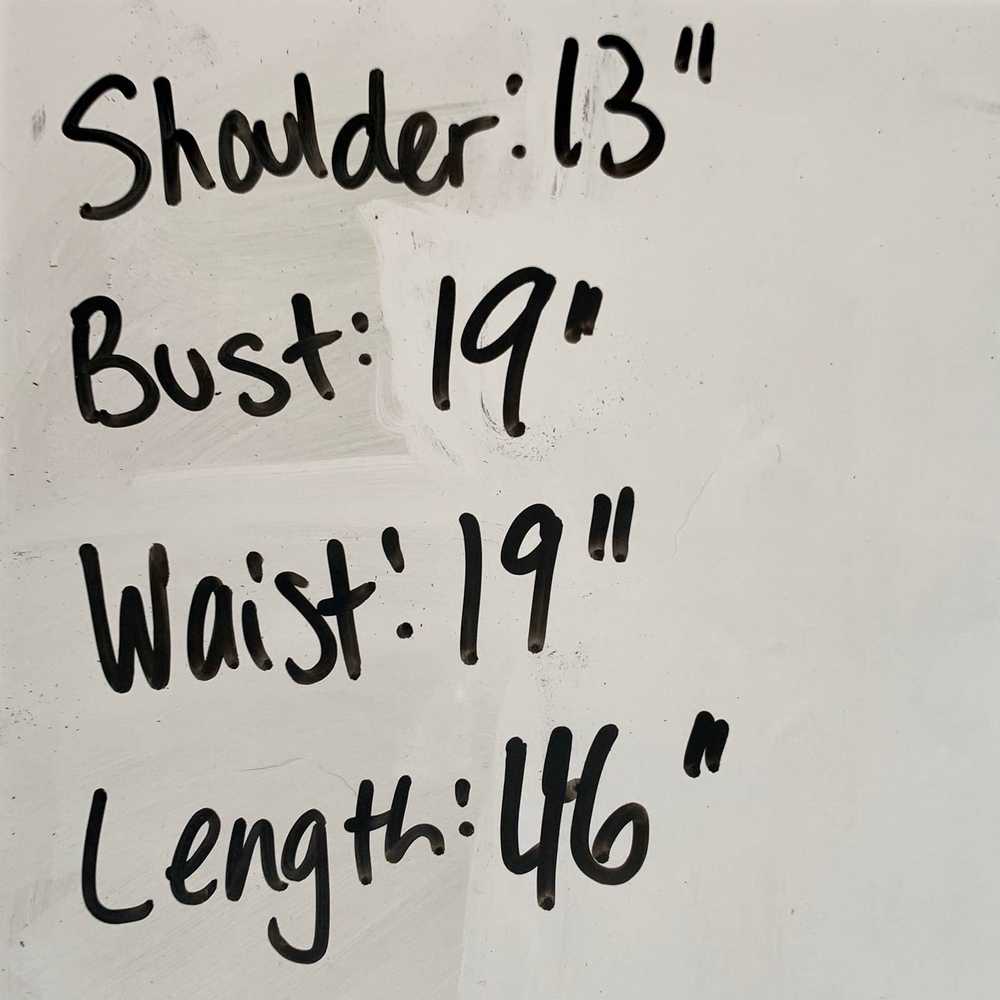 Shoulder: 13"
Bust: 19"
Waist: 19"
Length: 46"